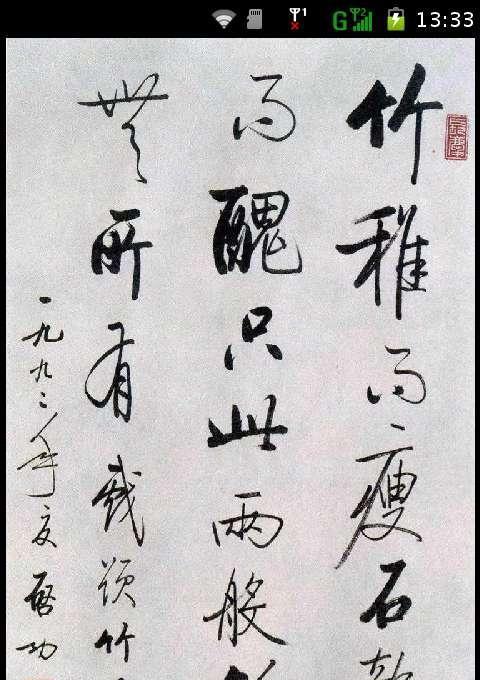 13:33
竹稚而瘦石
而醜只此兩般
無所有戲題竹
一九九二年夏啓功